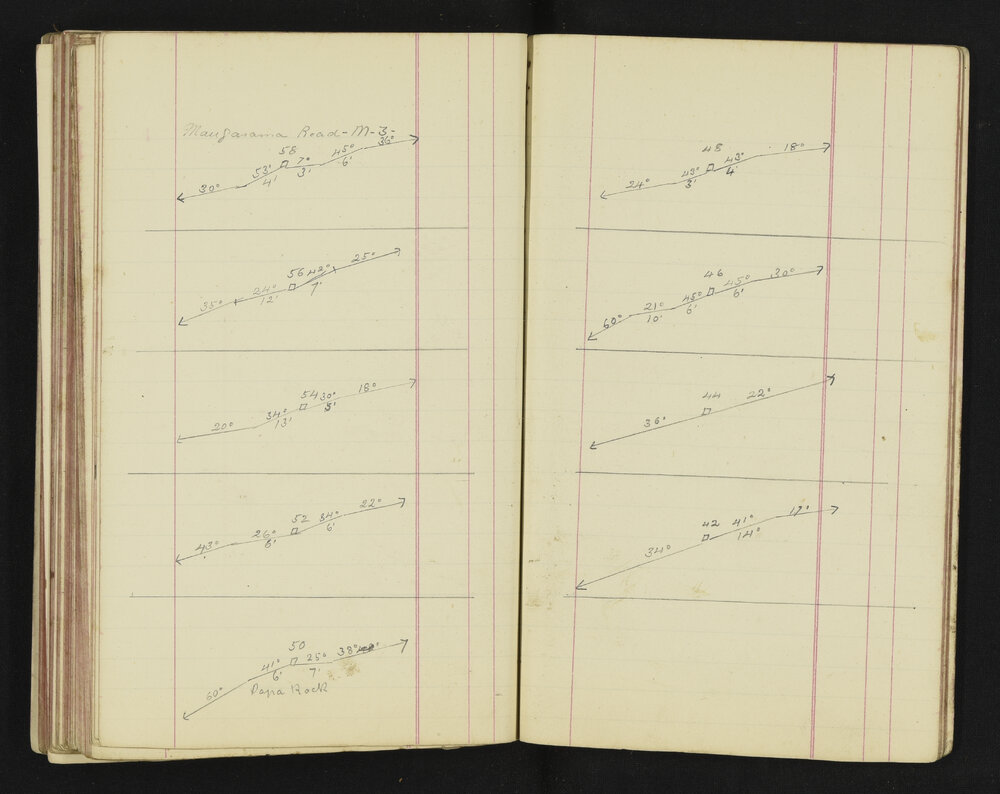 Mangarama Road - M-3-
58
30° 53° 4' 7° 3' 45° 6' 36°
56
35° 24° 12' 42° 7' 25°
54
20° 34° 13' 30° 5' 18°
52
43° 26° 8' 34° 6' 22°
50
60° 41° 6' 25° 7' 38°
Papa Rock
48
24° 43° 3' 43° 4' 18°
46
60° 21° 10' 45° 6' 45° 6' 30°
44
36° 22°
42
34° 41° 14° 17°